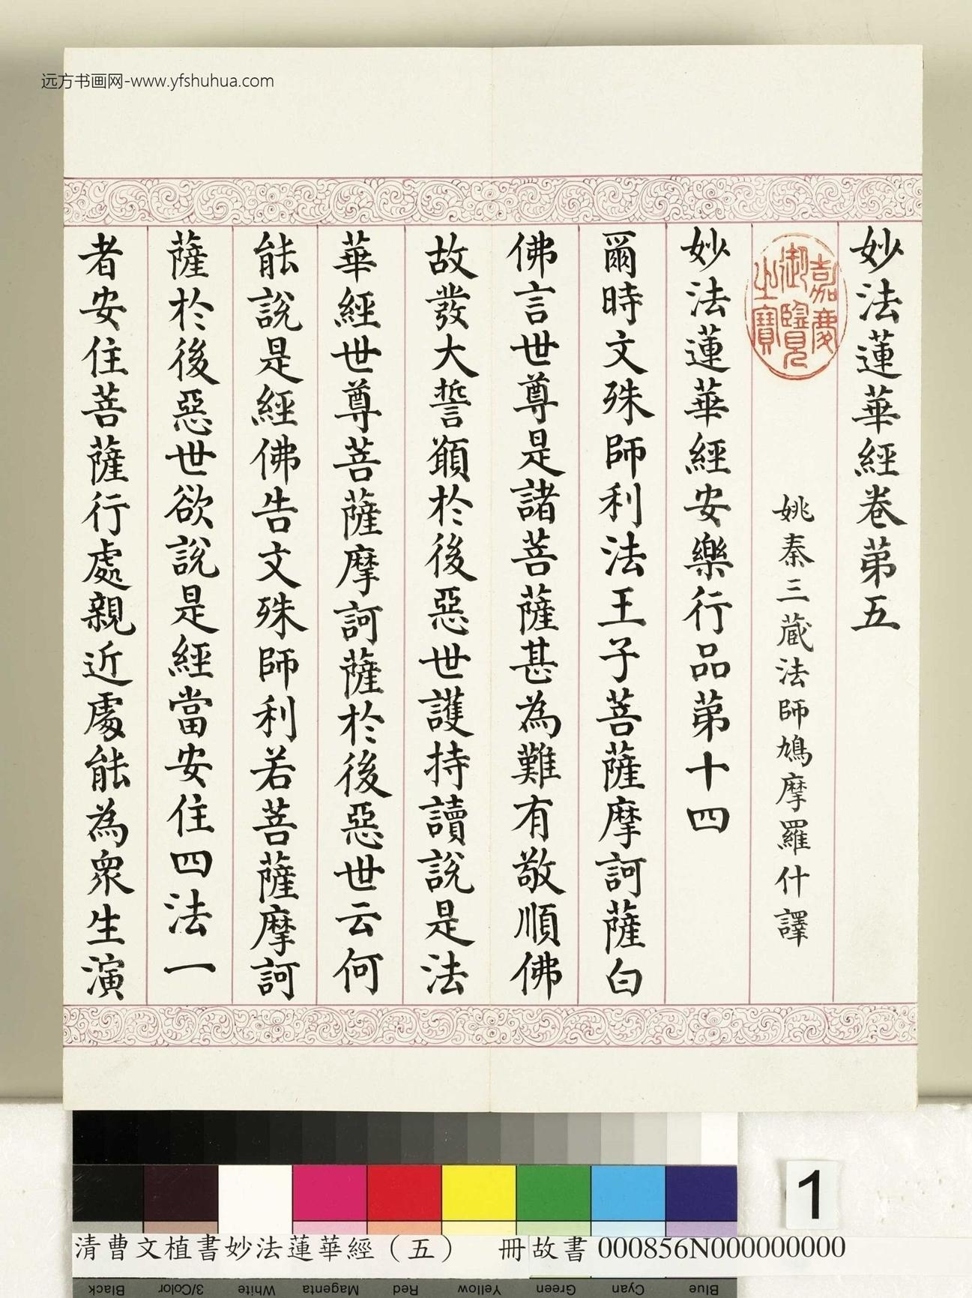 远方书画网-www.yfshuhua.com
妙法蓮華經卷第五
嘉慶御覽之寶
姚秦三蔵法師鳩摩羅什譯
妙法蓮華經安樂行品第十四
爾時文殊師利法王子菩薩摩訶薩白
佛言世尊是諸菩薩甚為難有敬順佛
故發大誓願於後惡世護持讀說是法
華經世尊菩薩摩訶薩於後惡世云何
能說是經佛告文殊師利若菩薩摩訶
薩於後惡世欲說是經當安住四法一
者安住菩薩行處親近處能為衆生演
1
清曹文植書妙法蓮華經（五） 冊 故書 000856N000000000
Black 3/Color White Magenta Red Yellow Green Cyan Blue